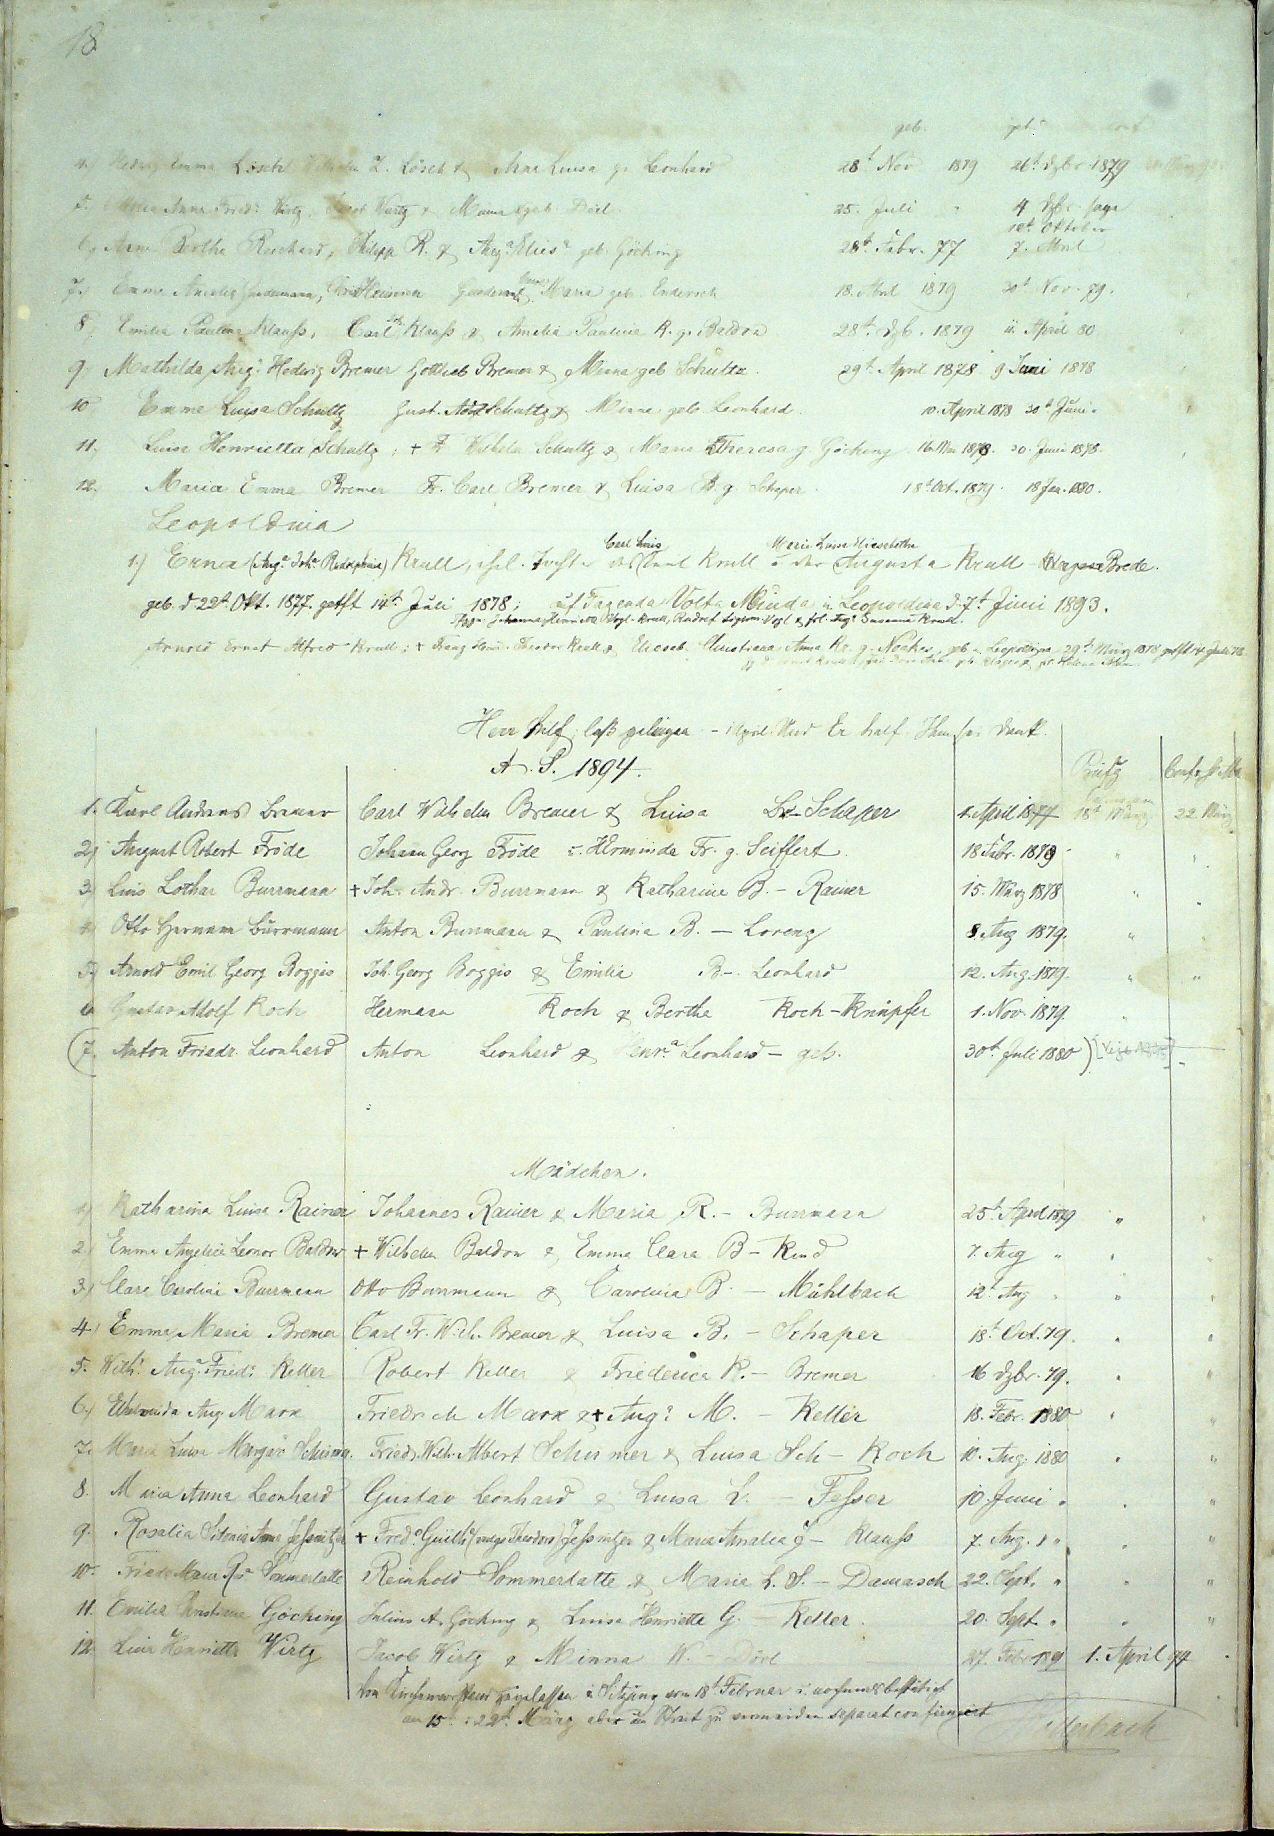 18
geb. get. conf
4. Emma Lösch Wilhelm L. Lösch & Anna Luisa g. Leonhard 28t Nov 1879 26t Dzbr 1879
5. Anna Fried: Wirtz, Jacob Wirtz & Minna geb. Dörl 25. Juli " 4 Dzbr.
12t. Oktober
6, Anna Bertha Reinhard, Philipp R. & Aug.a Elis.a geb. Göcking 28t. Febr. 77 7. April
7. Emma Amalia Gundermann, Heinrich & Maria geb. Endersch 18. April 1879 30t Nov. 79.
8, Emilia Paulina Klauss, Carl Klauss & Amelia Paulina K. g. Baldon 28t. Dzb. 1879 11. April 80
9, Mathilda Aug: Hedwig Bremer Gottlieb Bremer & Minna geb Schultz. 29t. April 1878 9 Juni 1878
10 Emma Luisa Schultz Gust. Adolf Schultz & Minna geb. Leonhard. 10. April 1878 30t Juni "
11. Luise Henrietta Schultz, + F. Wilhelm Schultz & Maria Theresa g. Göcking 16. Mai 1878. 30. Juni 1878.
12. Maria Emma Bremer Fr. Carl Bremer & Luisa B. g. Schaper 18t Oct. 1879. 18 Jan. 1880.
Leopoldina
Carl Louis Maria Luise Elisabetha
1.) Erna (Aug.a Joh.a Rudolphina) Krull, ehel. Tocht. d. Krull u. der Augusta Krull Brede.
geb. d 22t. Okt. 1877. getft 14t Juli 1878; auf Fazenda Volta Miuda in Leopoldina d. 7t Juni 1893.
Johanna Henriette Vogl-Krull, Rudolf Sigism. Vogl & Susanna Krull.
Arnold Ernst Alfred Krull; + Franz Theodor Krull & Elisab. Christiana Anna Kr. g. Noeker, geb. in Leopoldina 29t März 1878 getft 14 Juli 78
Herr hilf, laß gelingen – Und Er half. Ihm sei Dank.
A. D. 1894.
Prüfg Conf.
1. Karl Andreas Bremer Carl Wilhelm Bremer & Luisa Br-Schaper 1. April 1877 18t März 22 März
2) August Robert Fröde Johann Georg Fröde u. Herminda Fr. g. Seiffert 18 Febr. 1879 " "
3. Luis Lothar Burrmann + Joh. Andr. Burrmann & Katharine B. – Rainer 15. März 1878 " "
4) Otto Hermann Burrmann Anton Burrmann & Paulina B. – Lorenz 8. Aug 1879. "
5) Arnold Emil Georg Boggis Joh. Georg Boggis & Emilia B–. Leonhard 12. Aug. 1879. " "
6 Gustav Adolf Koch Hermann Koch & Bertha Koch – Knüpfer 1. Nov. 1879
(7. Anton Friedr. Leonhard Anton Leonhard & Henr.a Leonhard – geb. 30t Juli 1880)
Mädchen.
1) Katharina Luise Rainer Johannes Rainer & Maria R. – Burrmann 25t April 1879 "
2) Emma Angelica Leonor Baldon + Wilhelm Baldon & Emma Clara B – Kind 7. Aug " "
3) Clara Carolina Burrmann Otto Burrmann & Carolina B. – Mühlbach 12t Aug " "
4) Emma Maria Bremer Carl Fr. Wilh. Bremer & Luisa B. – Schaper 18t Oct. 79. " "
5. Wilh. Aug. Fried: Keller Robert Keller & Friederica K. – Bremer 16 Dzbr. 79. " "
6) Aug. Marx Friedrich Marx & + Aug: M. – Keller 18. Febr. 1880 " "
7. Maria Luise Schirmer. Friedr. Wilh. Albert Schirmer & Luisa Sch – Koch 10. Aug. 1880 " "
8. Maria Anna Leonhard Gustav Leonhard & Luisa L. – Fesser 10. Juni " " "
9. Rosalia Sidonia Anna Jessnitzer + Fred.o Guilh. (vulgo Theodoro) Jessnitzer & Maria Amalia J – Klauss 7. Aug. " " "
10. Sommerlatte Reinhold Sommerlatte & Maria L. S. – Damasch 22. Sept. " " "
11. Emilia Christiane Göcking Julius A. Göcking & Luisa Henriette G. – Keller 20. Sept. " " "
12. Henriette Wirtz Jacob Wirtz & Minna W. – Dörl 27. Febr. 1. April 94
Vom Kirchenvorstand zugelassen i. Sitzung vom 18t Februar u. nochmals bestätigt
am 15. u 22t. März aber um Streit zu vermeiden separat confirmiert